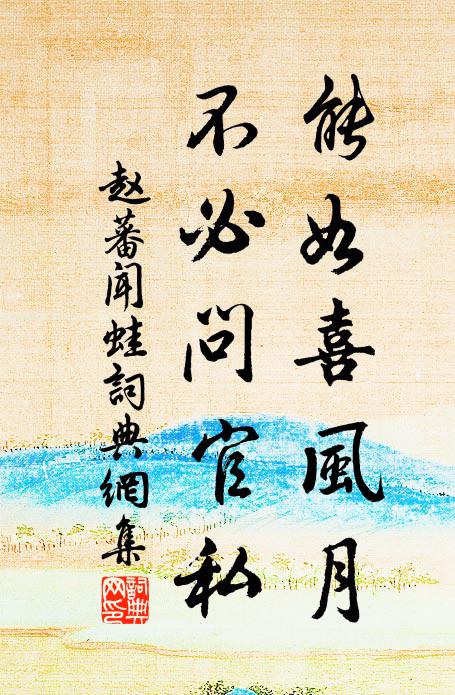 能如喜風月
不必問官私
赵蕃聞蛙詞典網集
詞典网印